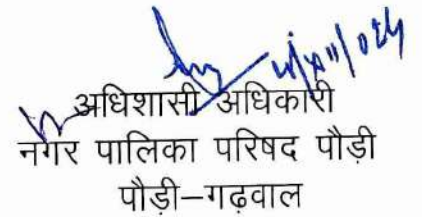 अधिशासी अधिकारी
नगर पालिका परिषद पौड़ी
पौड़ी–गढ़वाल